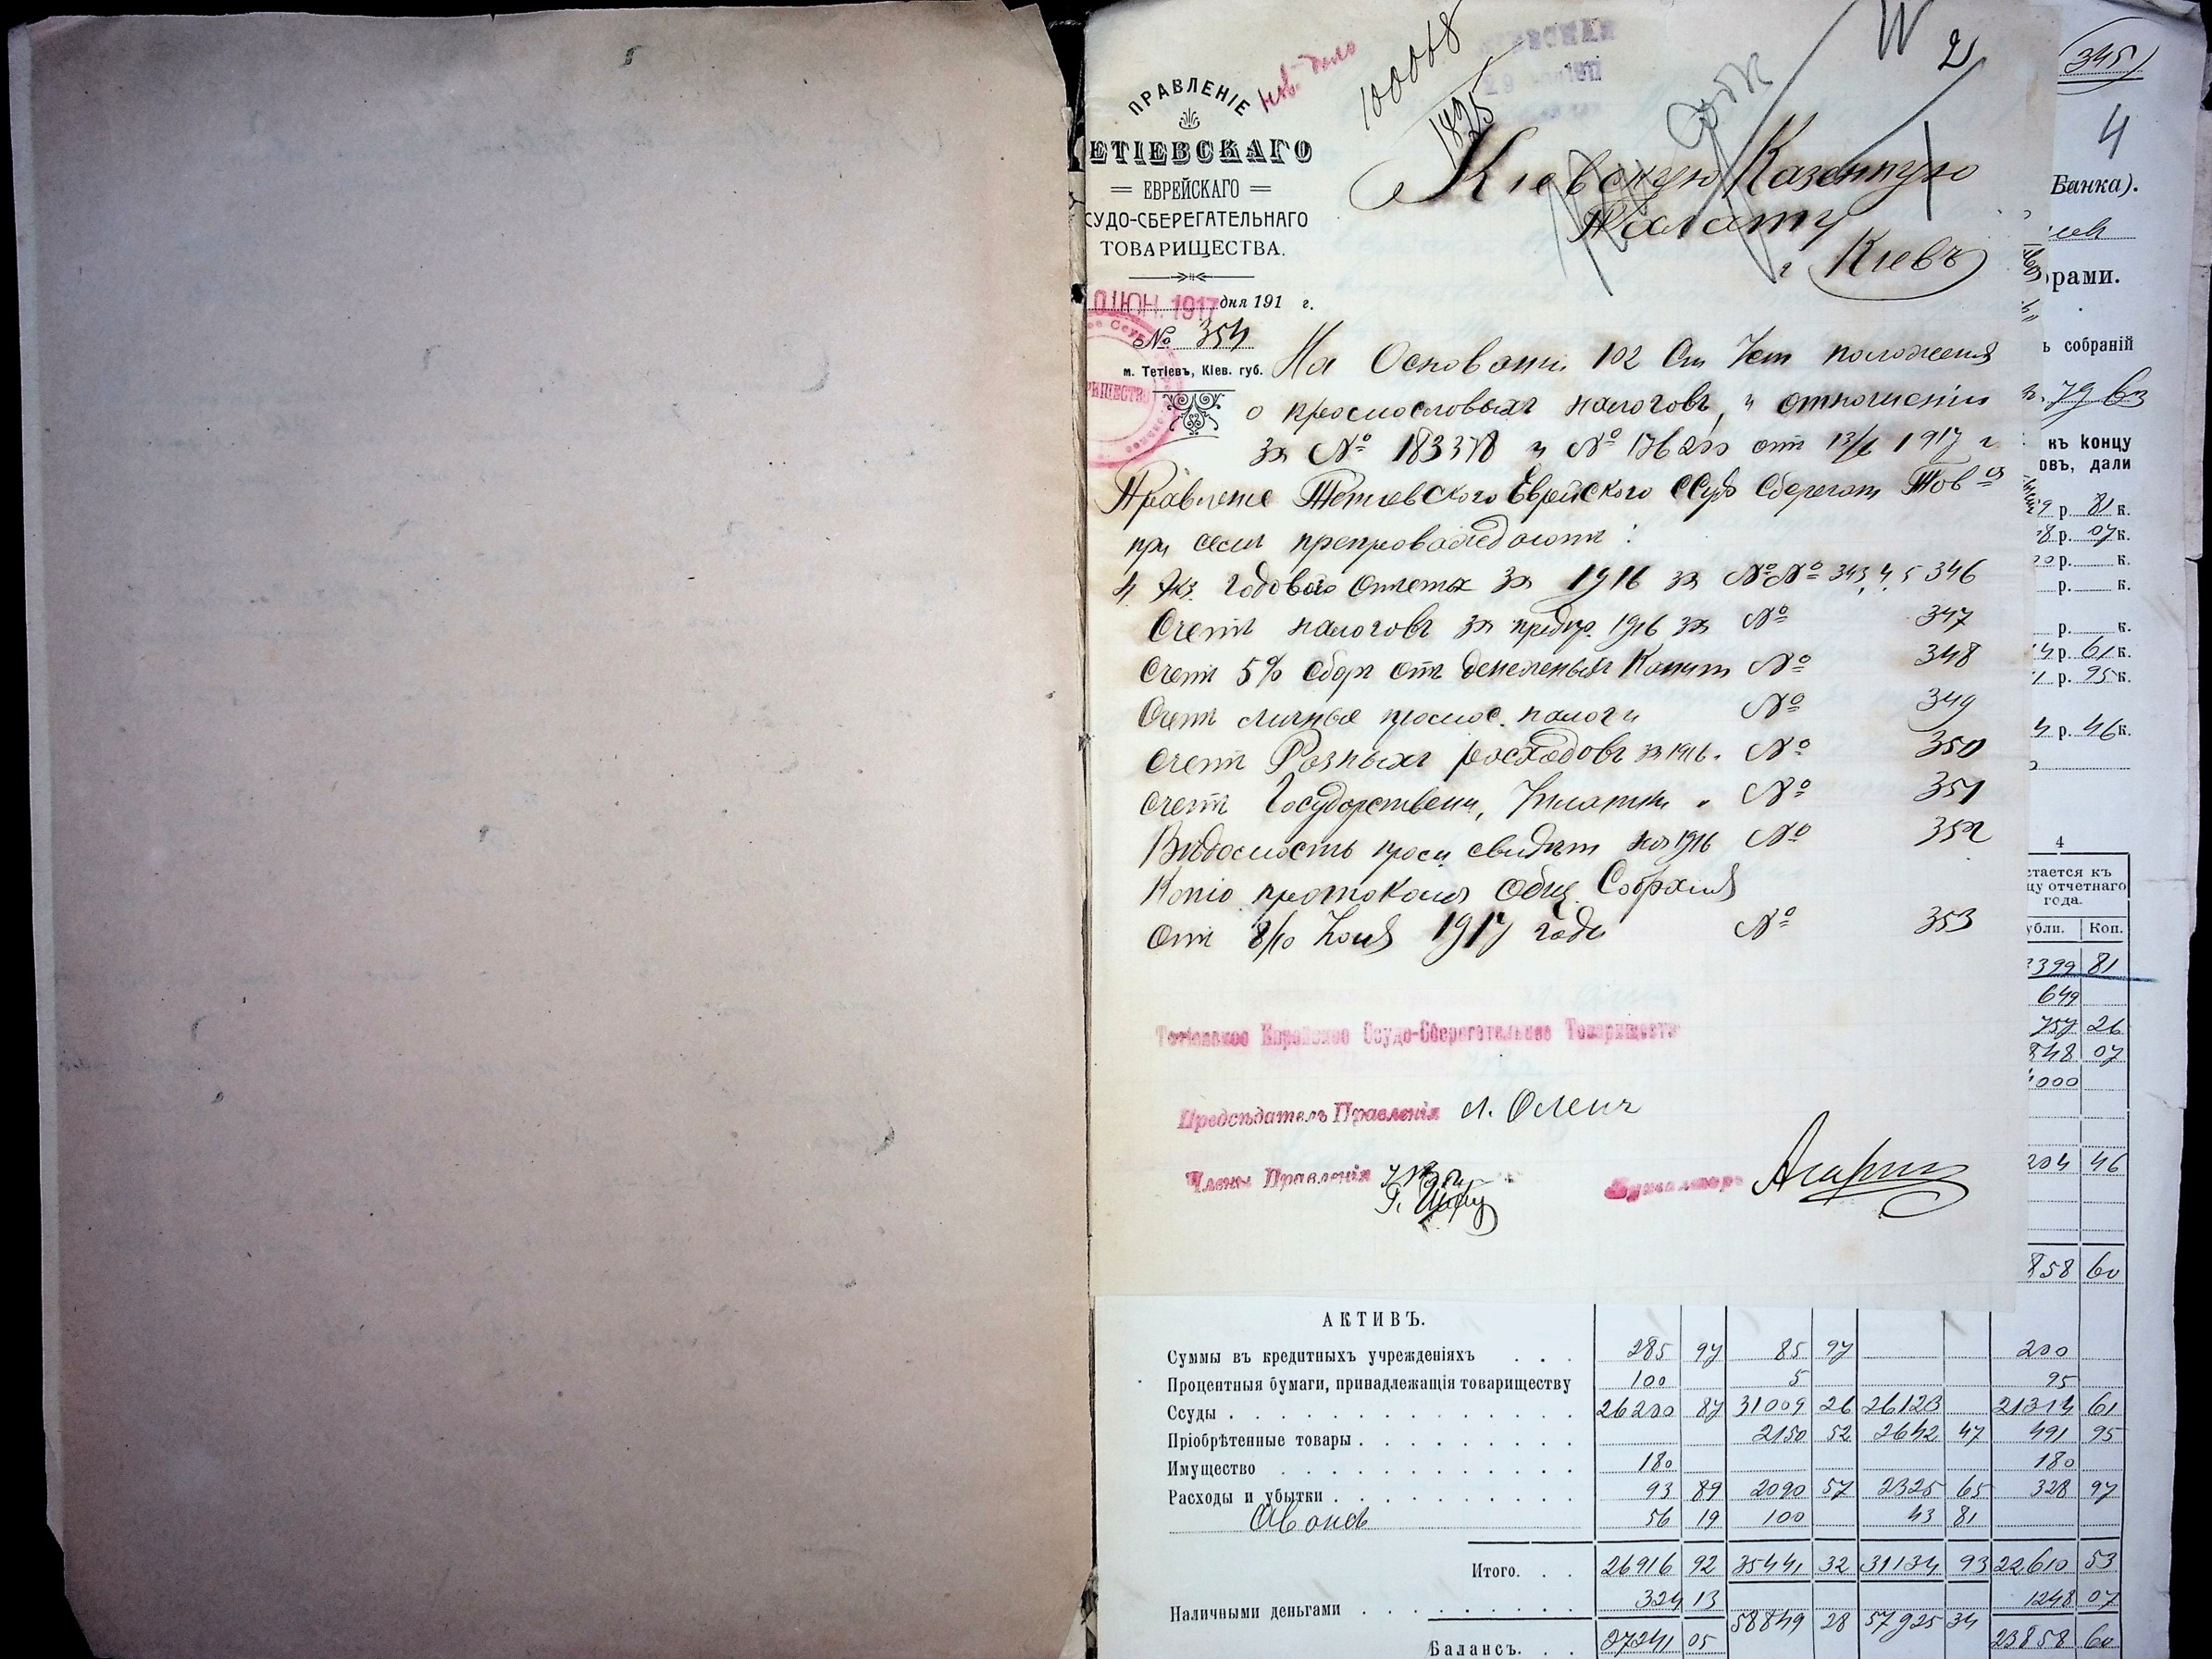 ПРАВЛЕНІЕ
ЕТІЕВСКАГО
ЕВРЕЙСКАГО
СУДО-СБЕРЕГАТЕЛЬНАГО
ТОВАРИЩЕСТВА.
0 ІЮН. 1917 дня 191 г.
№ 354
м. Тетіевъ, Кіев. губ.
100068
1825
21
Кіевскую Казенную
Палату
г Кіевъ
На Основании 102 Ст Уст положения
о промысловыхъ налоговъ, и отношении
за № 183378 и № 176200 от 13/6 1917 г
Правление Тетиевского Еврейского Ссудо Сберегат Тов-ва
при сем препровождаетъ:
4 Экз. Годового Отчета за 1916 за №№ 343, 4, 5 346
Счетъ налоговъ за предпр. 1916 за № 347
Счетъ 5% Сборъ отъ денежныхъ Капит № 348
Счетъ личные промыс. налоги № 349
Счетъ Разныхъ расходовъ за 1916. № 350
Счетъ Государствен, " № 351
Вѣдомость пром свидѣт на 1916 № 352
Копію протокола Общ. Собрания
От 8/10 Июня 1917 года № 353
Тетіевское Еврейское Ссудо-Сберегательное Товарищество
Предсѣдатель Правленія
Члены Правленія
Бухгалтеръ
АКТИВЪ.
Суммы въ кредитныхъ учрежденіяхъ . . . 285 97 85 97 200
Процентныя бумаги, принадлежащія товариществу 100 5 95
Ссуды . . . 26200 87 31009 26 26123 21314 61
Пріобрѣтенные товары . . . 2150 52 2642 47 491 95
Имущество . . . 180 180
Расходы и убытки . . . 93 89 2090 57 2325 65 328 97
Авансъ 56 19 100 43 81
Итого. . . 26916 92 35441 32 31134 93 22610 53
Наличными деньгами . . . 324 13 1248 07
58849 28 57925 34
Балансъ. . . 27241 05 23858 60
345
4
Банка).
рами.
ъ собраній
79
къ концу
овъ, дали
9 р. 81 к.
8 р. 07 к.
00 р. к.
р. к.
р. к.
4 р. 61 к.
1 р. 95 к.
4 р. 46 к.
4
стается къ
цу отчетнаго
года.
убли. Коп.
399 81
649
757 26
848 07
000
204 46
858 60